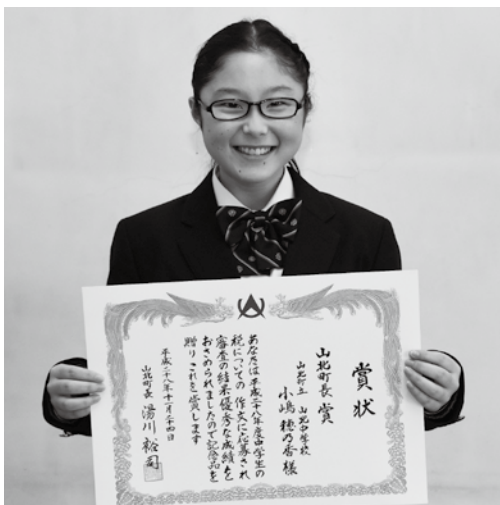 賞状
山北町長賞
山北町立 山北中学校
小嶋穂乃香様
あなたは平成二十八年度中学生の
税についての作文に応募され
審査の結果優秀な成績を
おさめられましたので記念品を
贈りこれを賞します
平成二十八年十一月二十四日
山北町長 湯川裕司